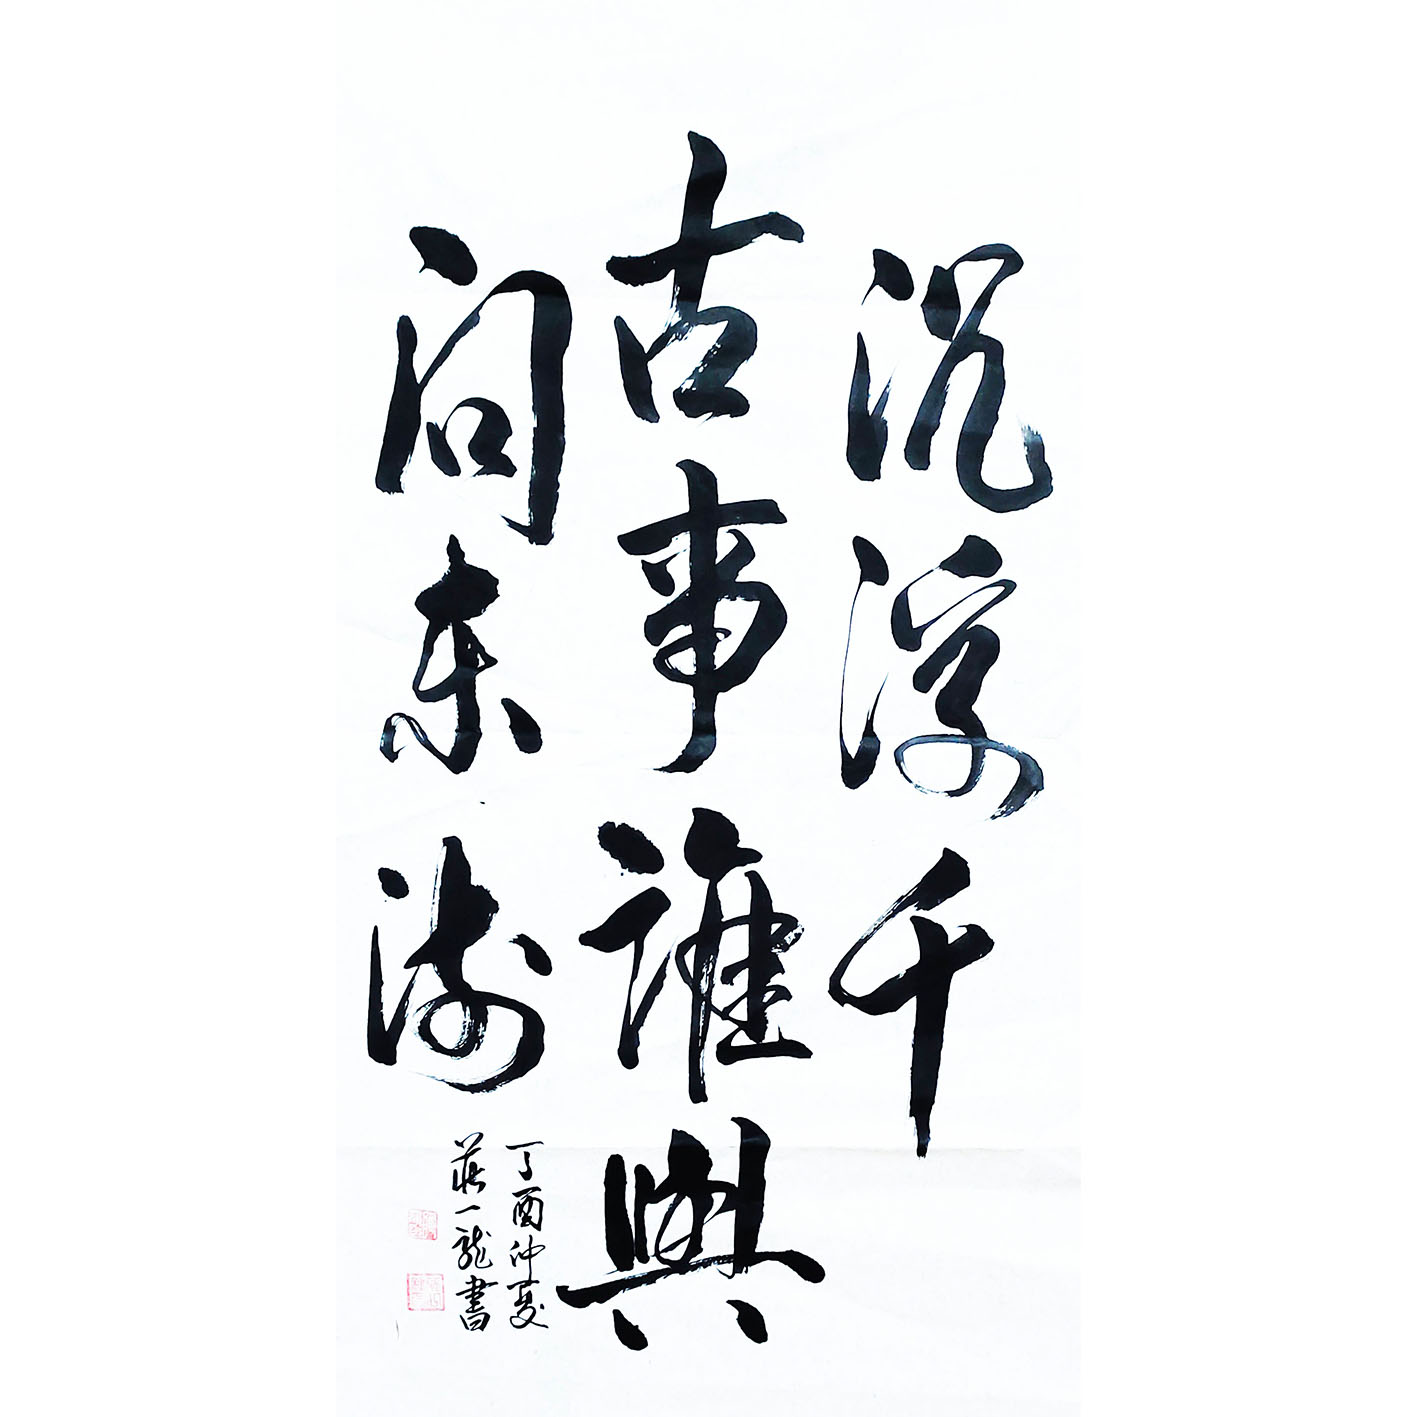 沉浮千
古事誰與
問東流
丁酉仲夏
莊一龍書